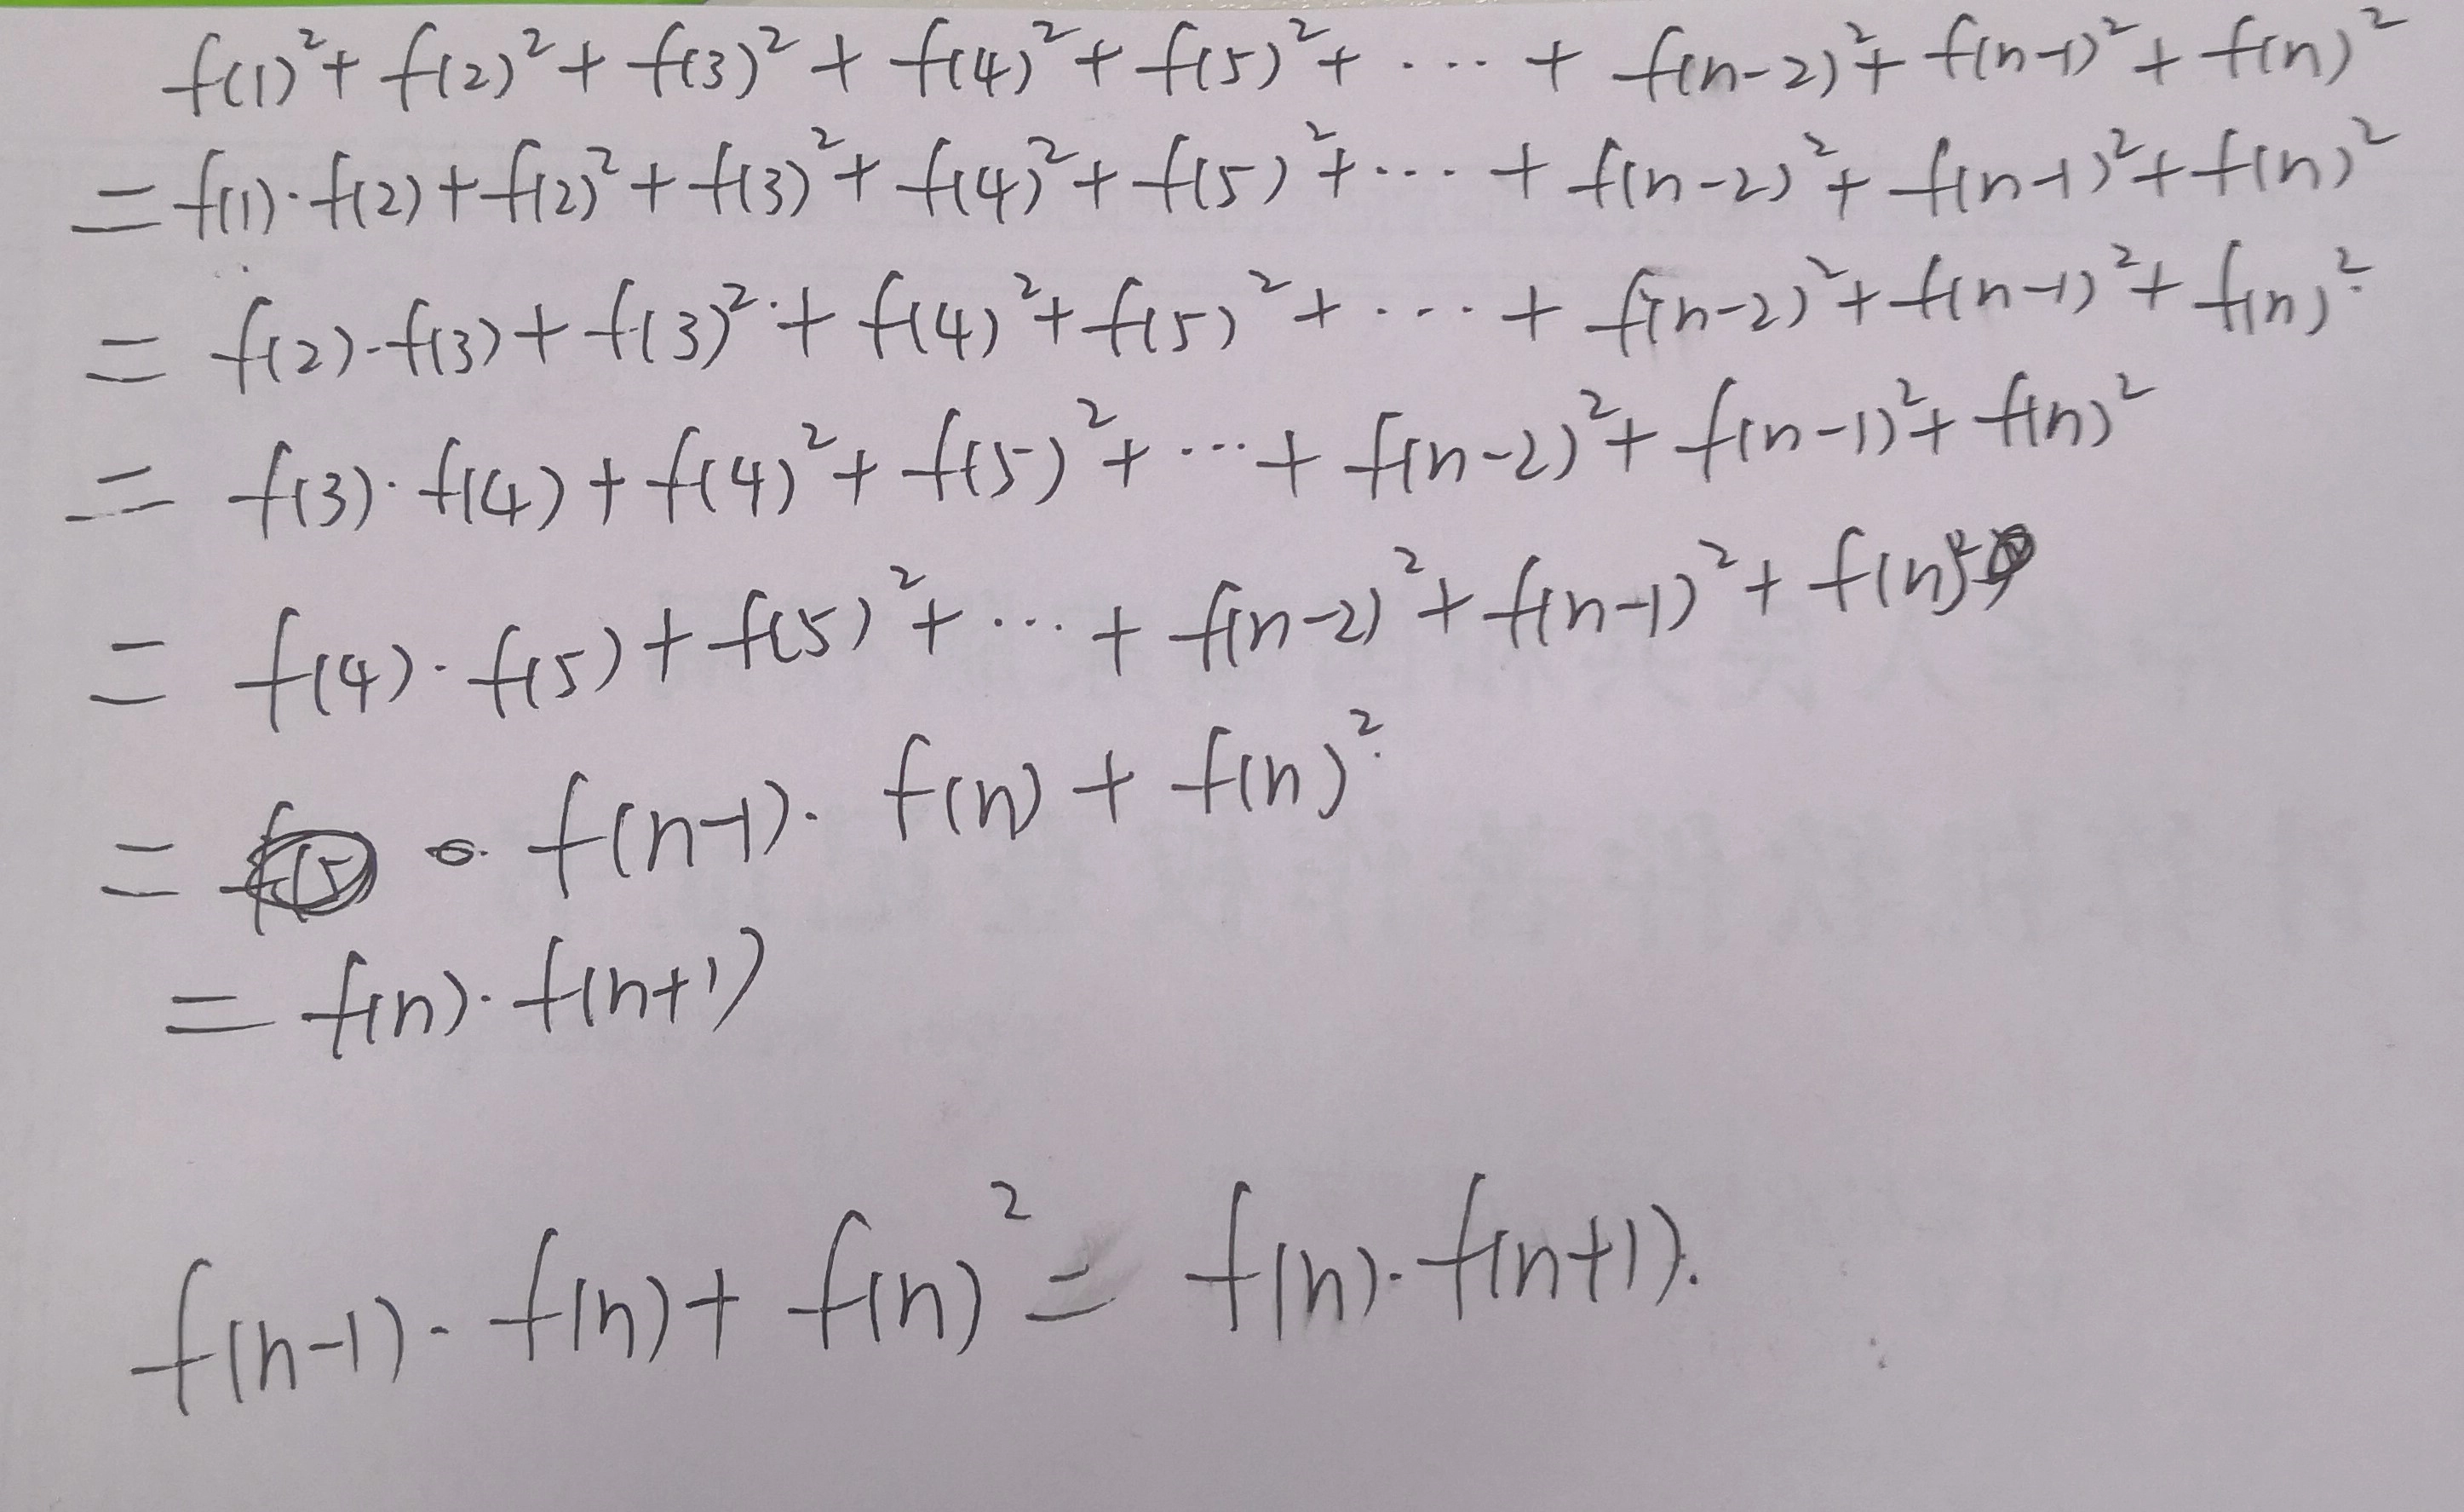 f(1)²+ f(2)² + f(3)² + f(4)² + f(5)² + ··· + f(n-2)² + f(n-1)² + f(n)²
= f(1)·f(2) + f(2)² + f(3)² + f(4)² + f(5)² + ··· + f(n-2)² + f(n-1)² + f(n)²
= f(2)·f(3) + f(3)² + f(4)² + f(5)² + ··· + f(n-2)² + f(n-1)² + f(n)²
= f(3)·f(4) + f(4)² + f(5)² + ··· + f(n-2)² + f(n-1)² + f(n)²
= f(4)·f(5) + f(5)² + ··· + f(n-2)² + f(n-1)² + f(n)²
= f(n-1)·f(n) + f(n)²
= f(n)·f(n+1)
f(n-1)·f(n) + f(n)² = f(n)·f(n+1).